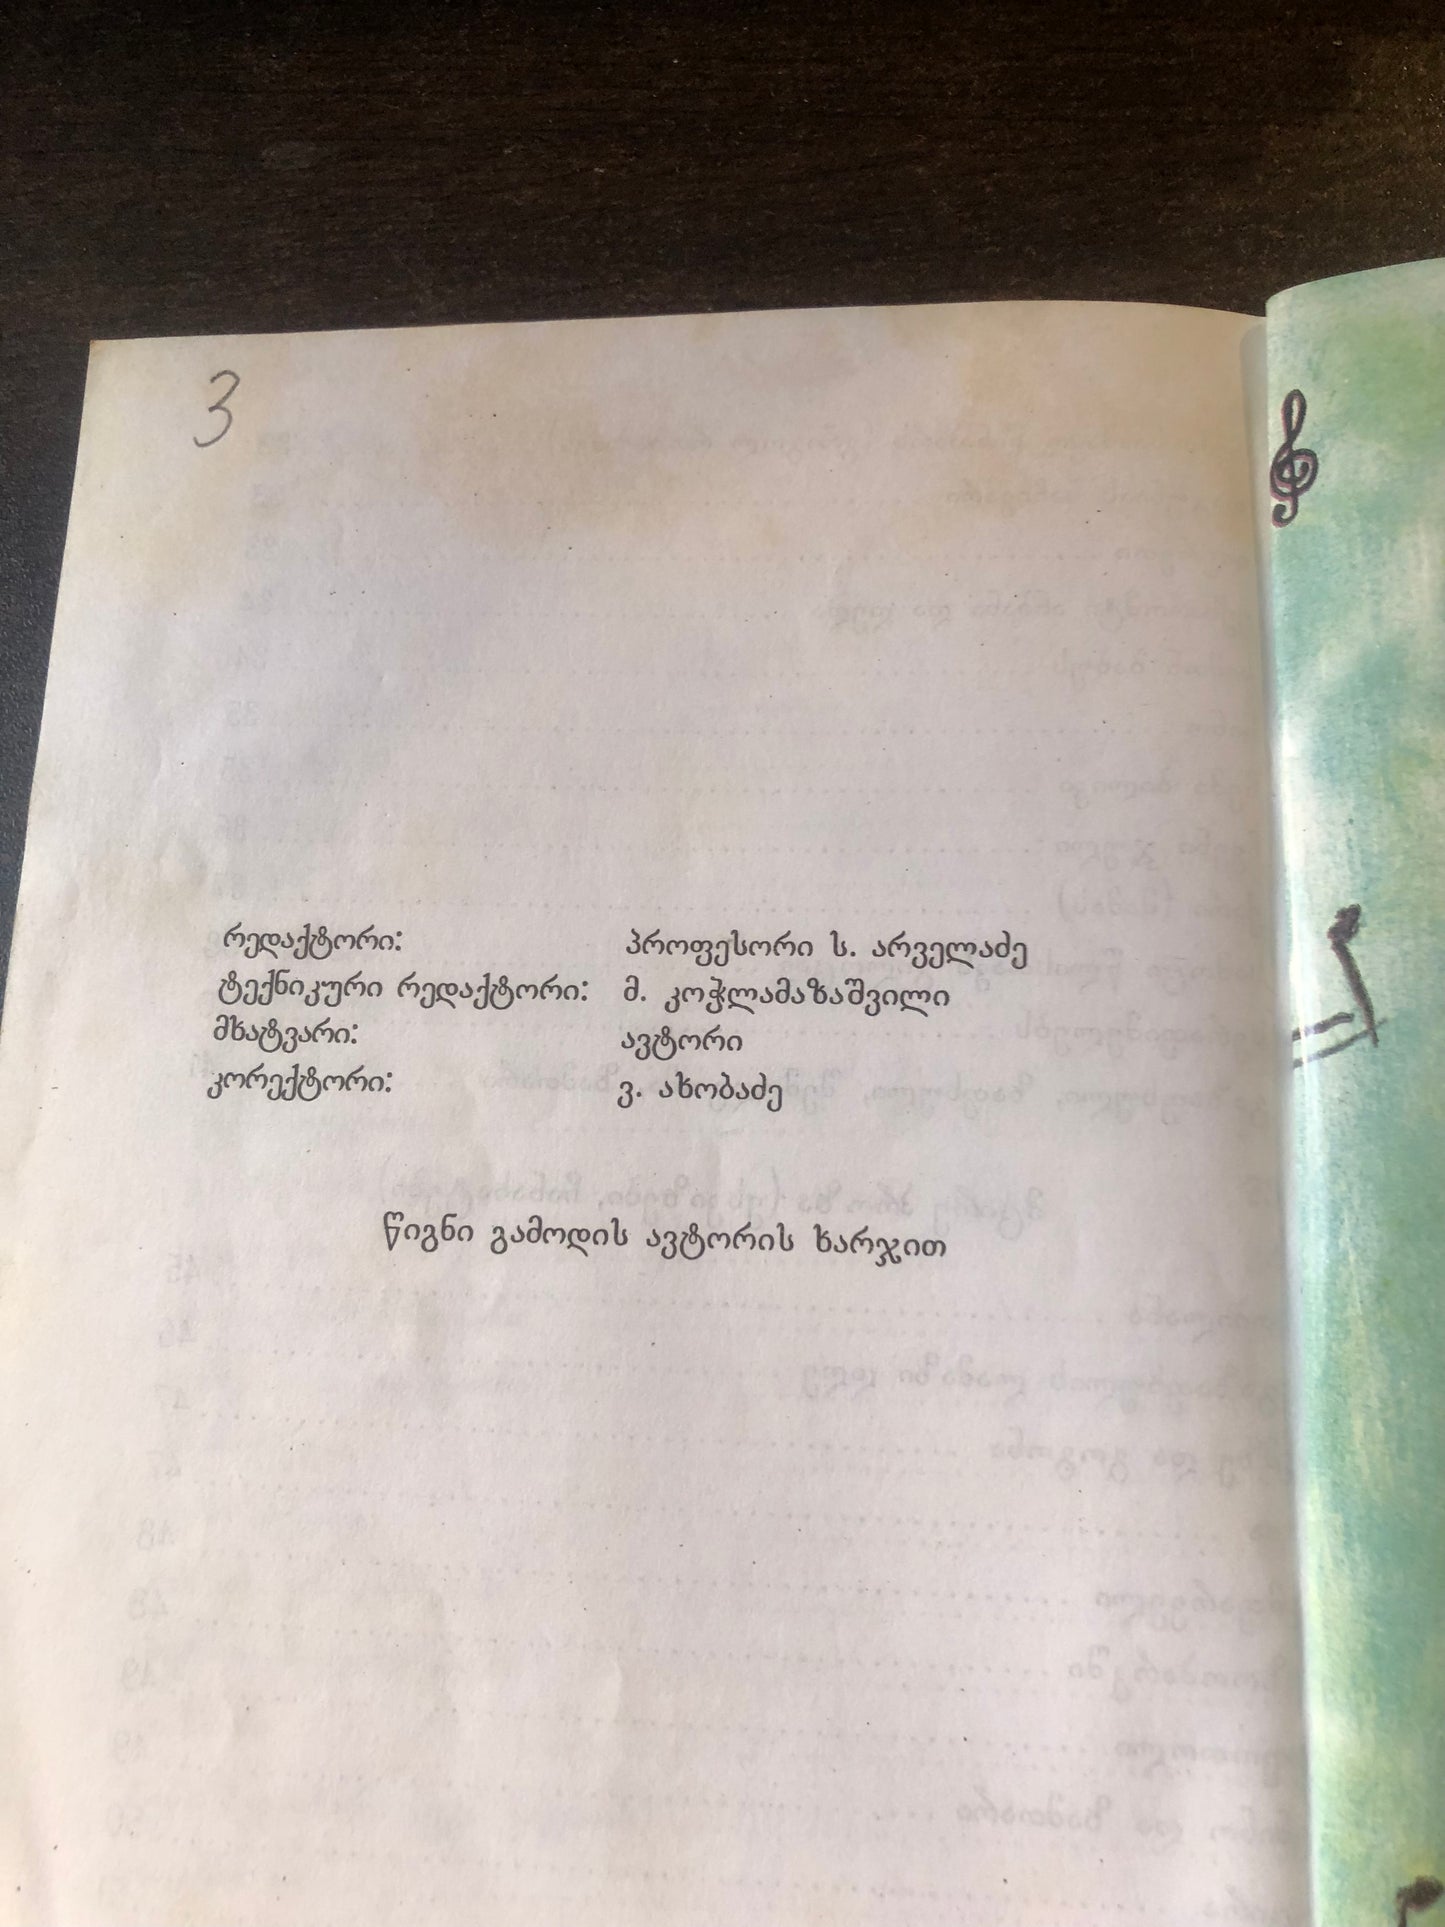 3
რედაქტორი: პროფესორი ს. არველაძე
ტექნიკური რედაქტორი: მ. კოჭლამაზაშვილი
მხატვარი: ავტორი
კორექტორი: ვ. ახობაძე
წიგნი გამოდის ავტორის ხარჯით